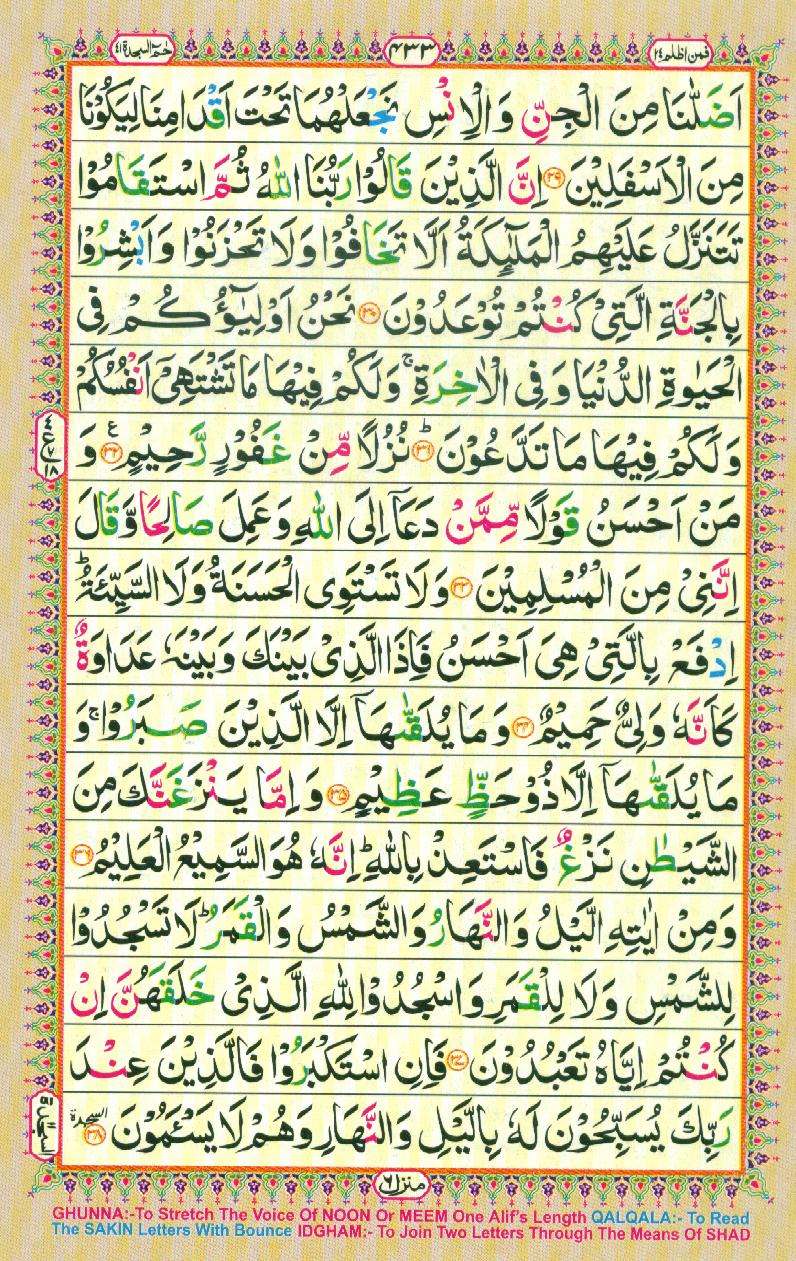 فمن اظلم ٢٤
٤٣٣
حٰمٓ السجدة ٤١
اَضَلّٰنَا مِنَ الْجِنِّ وَ الْاِنْسِ نَجْعَلْهُمَا تَحْتَ اَقْدَامِنَا لِيَكُوْنَا
مِنَ الْاَسْفَلِيْنَ ۝٢٩ اِنَّ الَّذِيْنَ قَالُوْا رَبُّنَا اللّٰهُ ثُمَّ اسْتَقَامُوْا
تَتَنَزَّلُ عَلَيْهِمُ الْمَلٰٓئِكَةُ اَلَّا تَخَافُوْا وَ لَا تَحْزَنُوْا وَ اَبْشِرُوْا
بِالْجَنَّةِ الَّتِىْ كُنْتُمْ تُوْعَدُوْنَ ۝٣٠ نَحْنُ اَوْلِيٰٓؤُكُمْ فِى
الْحَيٰوةِ الدُّنْيَا وَ فِى الْاٰخِرَةِ ۚ وَ لَكُمْ فِيْهَا مَا تَشْتَهِىْۤ اَنْفُسُكُمْ
وَ لَكُمْ فِيْهَا مَا تَدَّعُوْنَ ؕ ۝٣١ نُزُلًا مِّنْ غَفُوْرٍ رَّحِيْمٍ ۝٣٢ ع وَ
مَنْ اَحْسَنُ قَوْلًا مِّمَّنْ دَعَاۤ اِلَى اللّٰهِ وَ عَمِلَ صَالِحًا وَّ قَالَ
اِنَّنِىْ مِنَ الْمُسْلِمِيْنَ ۝٣٣ وَ لَا تَسْتَوِى الْحَسَنَةُ وَ لَا السَّيِّئَةُ ؕ
اِدْفَعْ بِالَّتِىْ هِىَ اَحْسَنُ فَاِذَا الَّذِىْ بَيْنَكَ وَ بَيْنَهٗ عَدَاوَةٌ
كَاَنَّهٗ وَلِىٌّ حَمِيْمٌ ۝٣٤ وَ مَا يُلَقّٰىهَاۤ اِلَّا الَّذِيْنَ صَبَرُوْا ۚ وَ
مَا يُلَقّٰىهَاۤ اِلَّا ذُوْ حَظٍّ عَظِيْمٍ ۝٣٥ وَ اِمَّا يَنْزَغَنَّكَ مِنَ
الشَّيْطٰنِ نَزْغٌ فَاسْتَعِذْ بِاللّٰهِ ؕ اِنَّهٗ هُوَ السَّمِيْعُ الْعَلِيْمُ ۝٣٦
وَ مِنْ اٰيٰتِهِ الَّيْلُ وَ النَّهَارُ وَ الشَّمْسُ وَ الْقَمَرُ ؕ لَا تَسْجُدُوْا
لِلشَّمْسِ وَ لَا لِلْقَمَرِ وَ اسْجُدُوْا لِلّٰهِ الَّذِىْ خَلَقَهُنَّ اِنْ
كُنْتُمْ اِيَّاهُ تَعْبُدُوْنَ ۝٣٧ فَاِنِ اسْتَكْبَرُوْا فَالَّذِيْنَ عِنْدَ
رَبِّكَ يُسَبِّحُوْنَ لَهٗ بِالَّيْلِ وَ النَّهَارِ وَ هُمْ لَا يَسْـَٔمُوْنَ ۝٣٨ السجدة
السجدة
منزل ٦
GHUNNA:-To Stretch The Voice Of NOON Or MEEM One Alif's Length QALQALA:- To Read
The SAKIN Letters With Bounce IDGHAM:- To Join Two Letters Through The Means Of SHAD